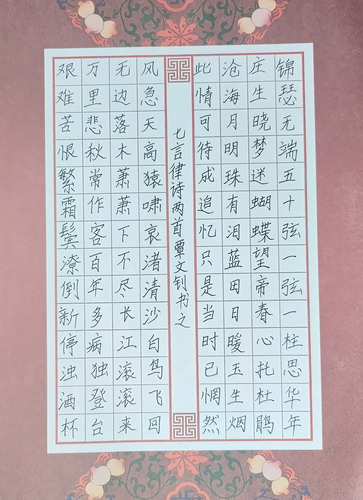 锦瑟无端五十弦一弦一柱思华年
庄生晓梦迷蝴蝶望帝春心托杜鹃
沧海月明珠有泪蓝田日暖玉生烟
此情可待成追忆只是当时已惘然
七言律诗两首覃文钊书之
风急天高猿啸哀渚清沙白鸟飞回
无边落木萧萧下不尽长江滚滚来
万里悲秋常作客百年多病独登台
艰难苦恨繁霜鬓潦倒新停浊酒杯